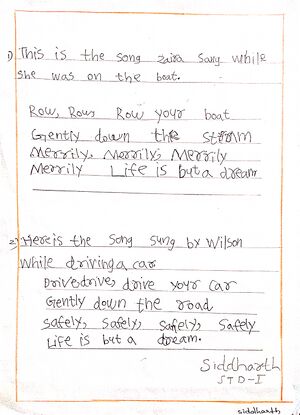 1) This is the song zaira sang while
she was on the boat.
Row, Row, Row your boat
Gently down the stream
Merrily, Merrily, Merrily
Merrily Life is but a dream
2) Here is the song sung by Wilson
while driving a car
Drive drive, drive your car
Gently down the road
safely, safely, safely, safely
Life is but a dream.
Siddharth
STD-I
siddharth